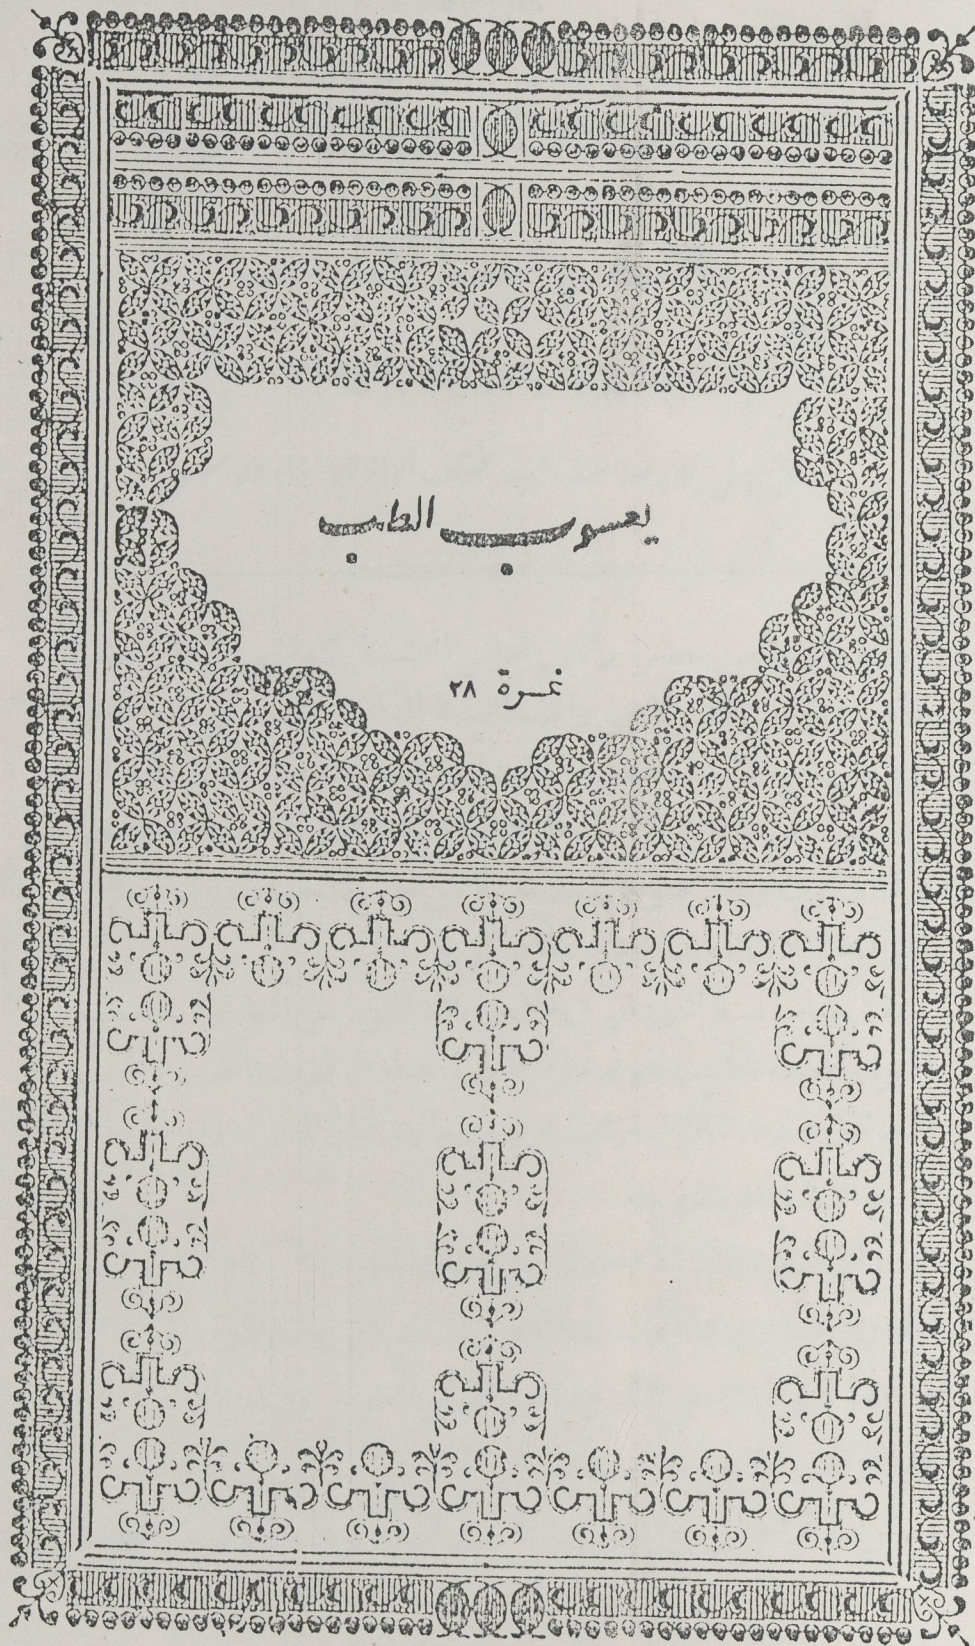 يعسوب الطب
نمرة ٢٨